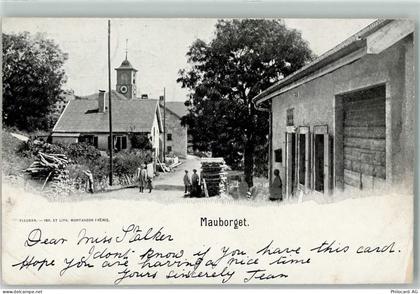 Mauborget.
FLEURIER. — IMP. ET LITH. MONTANDON FRÈRES.
Dear Miss Stalker
I dont know if you have this card.
Hope you are having a nice time
yours sincerely Jean
www.philocard.de / (C) PHILOCARD AG